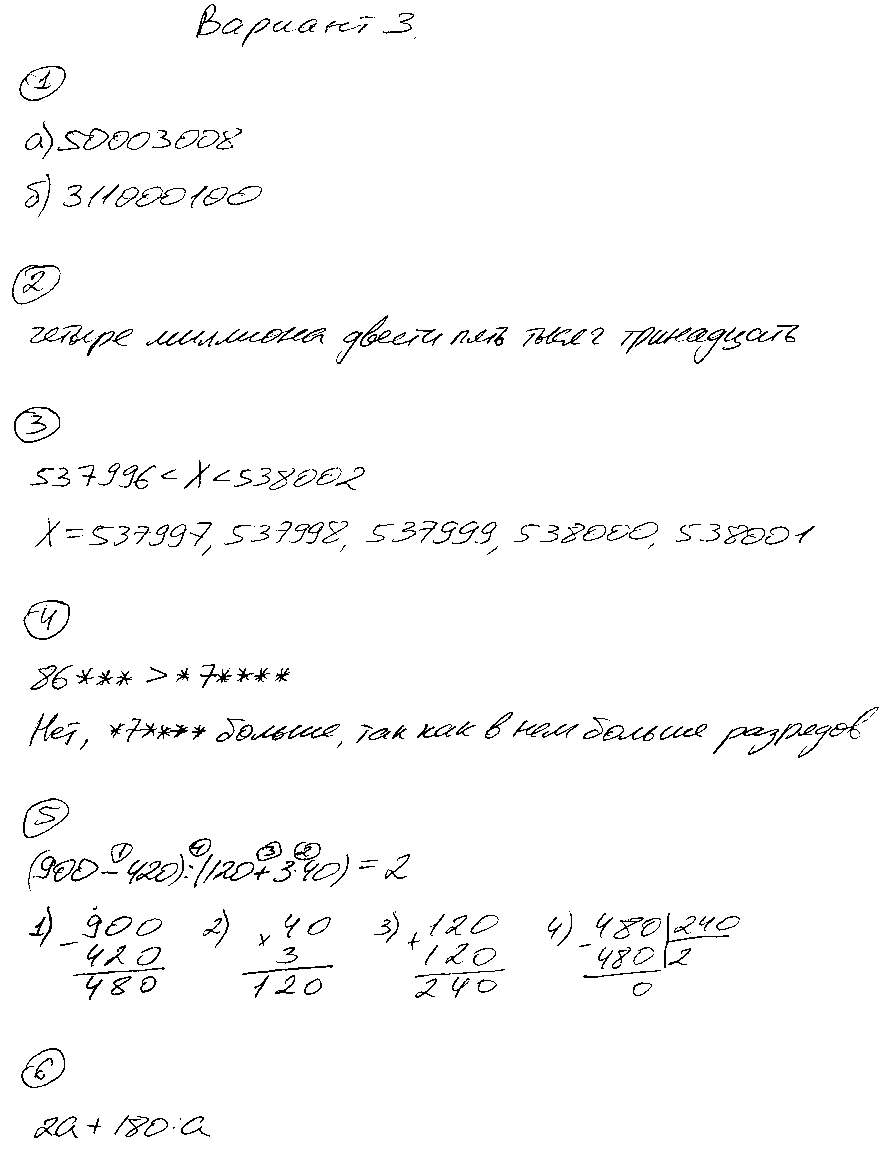 Вариант 3.
①
а) 50003008
б) 311000100
②
четыре миллиона двести пять тысяч тринадцать
③
537996 < X < 538002
X = 537997, 537998, 537999, 538000, 538001
④
86*** > *7****
Нет, *7**** больше, так как в нем больше разредов
⑤
① ④ ③ ②
(900 - 420) : (120 + 3·40) = 2
1) 900 2) 40 3) 120 4) 480 | 240
- 420 × 3 + 120 - 480 | 2
480 120 240 0
⑥
2a + 180 : a